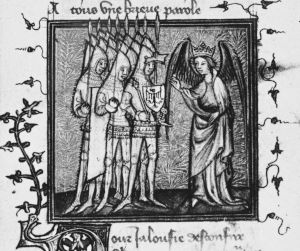 A tous une brieue parole
Pour jalousie desconfire